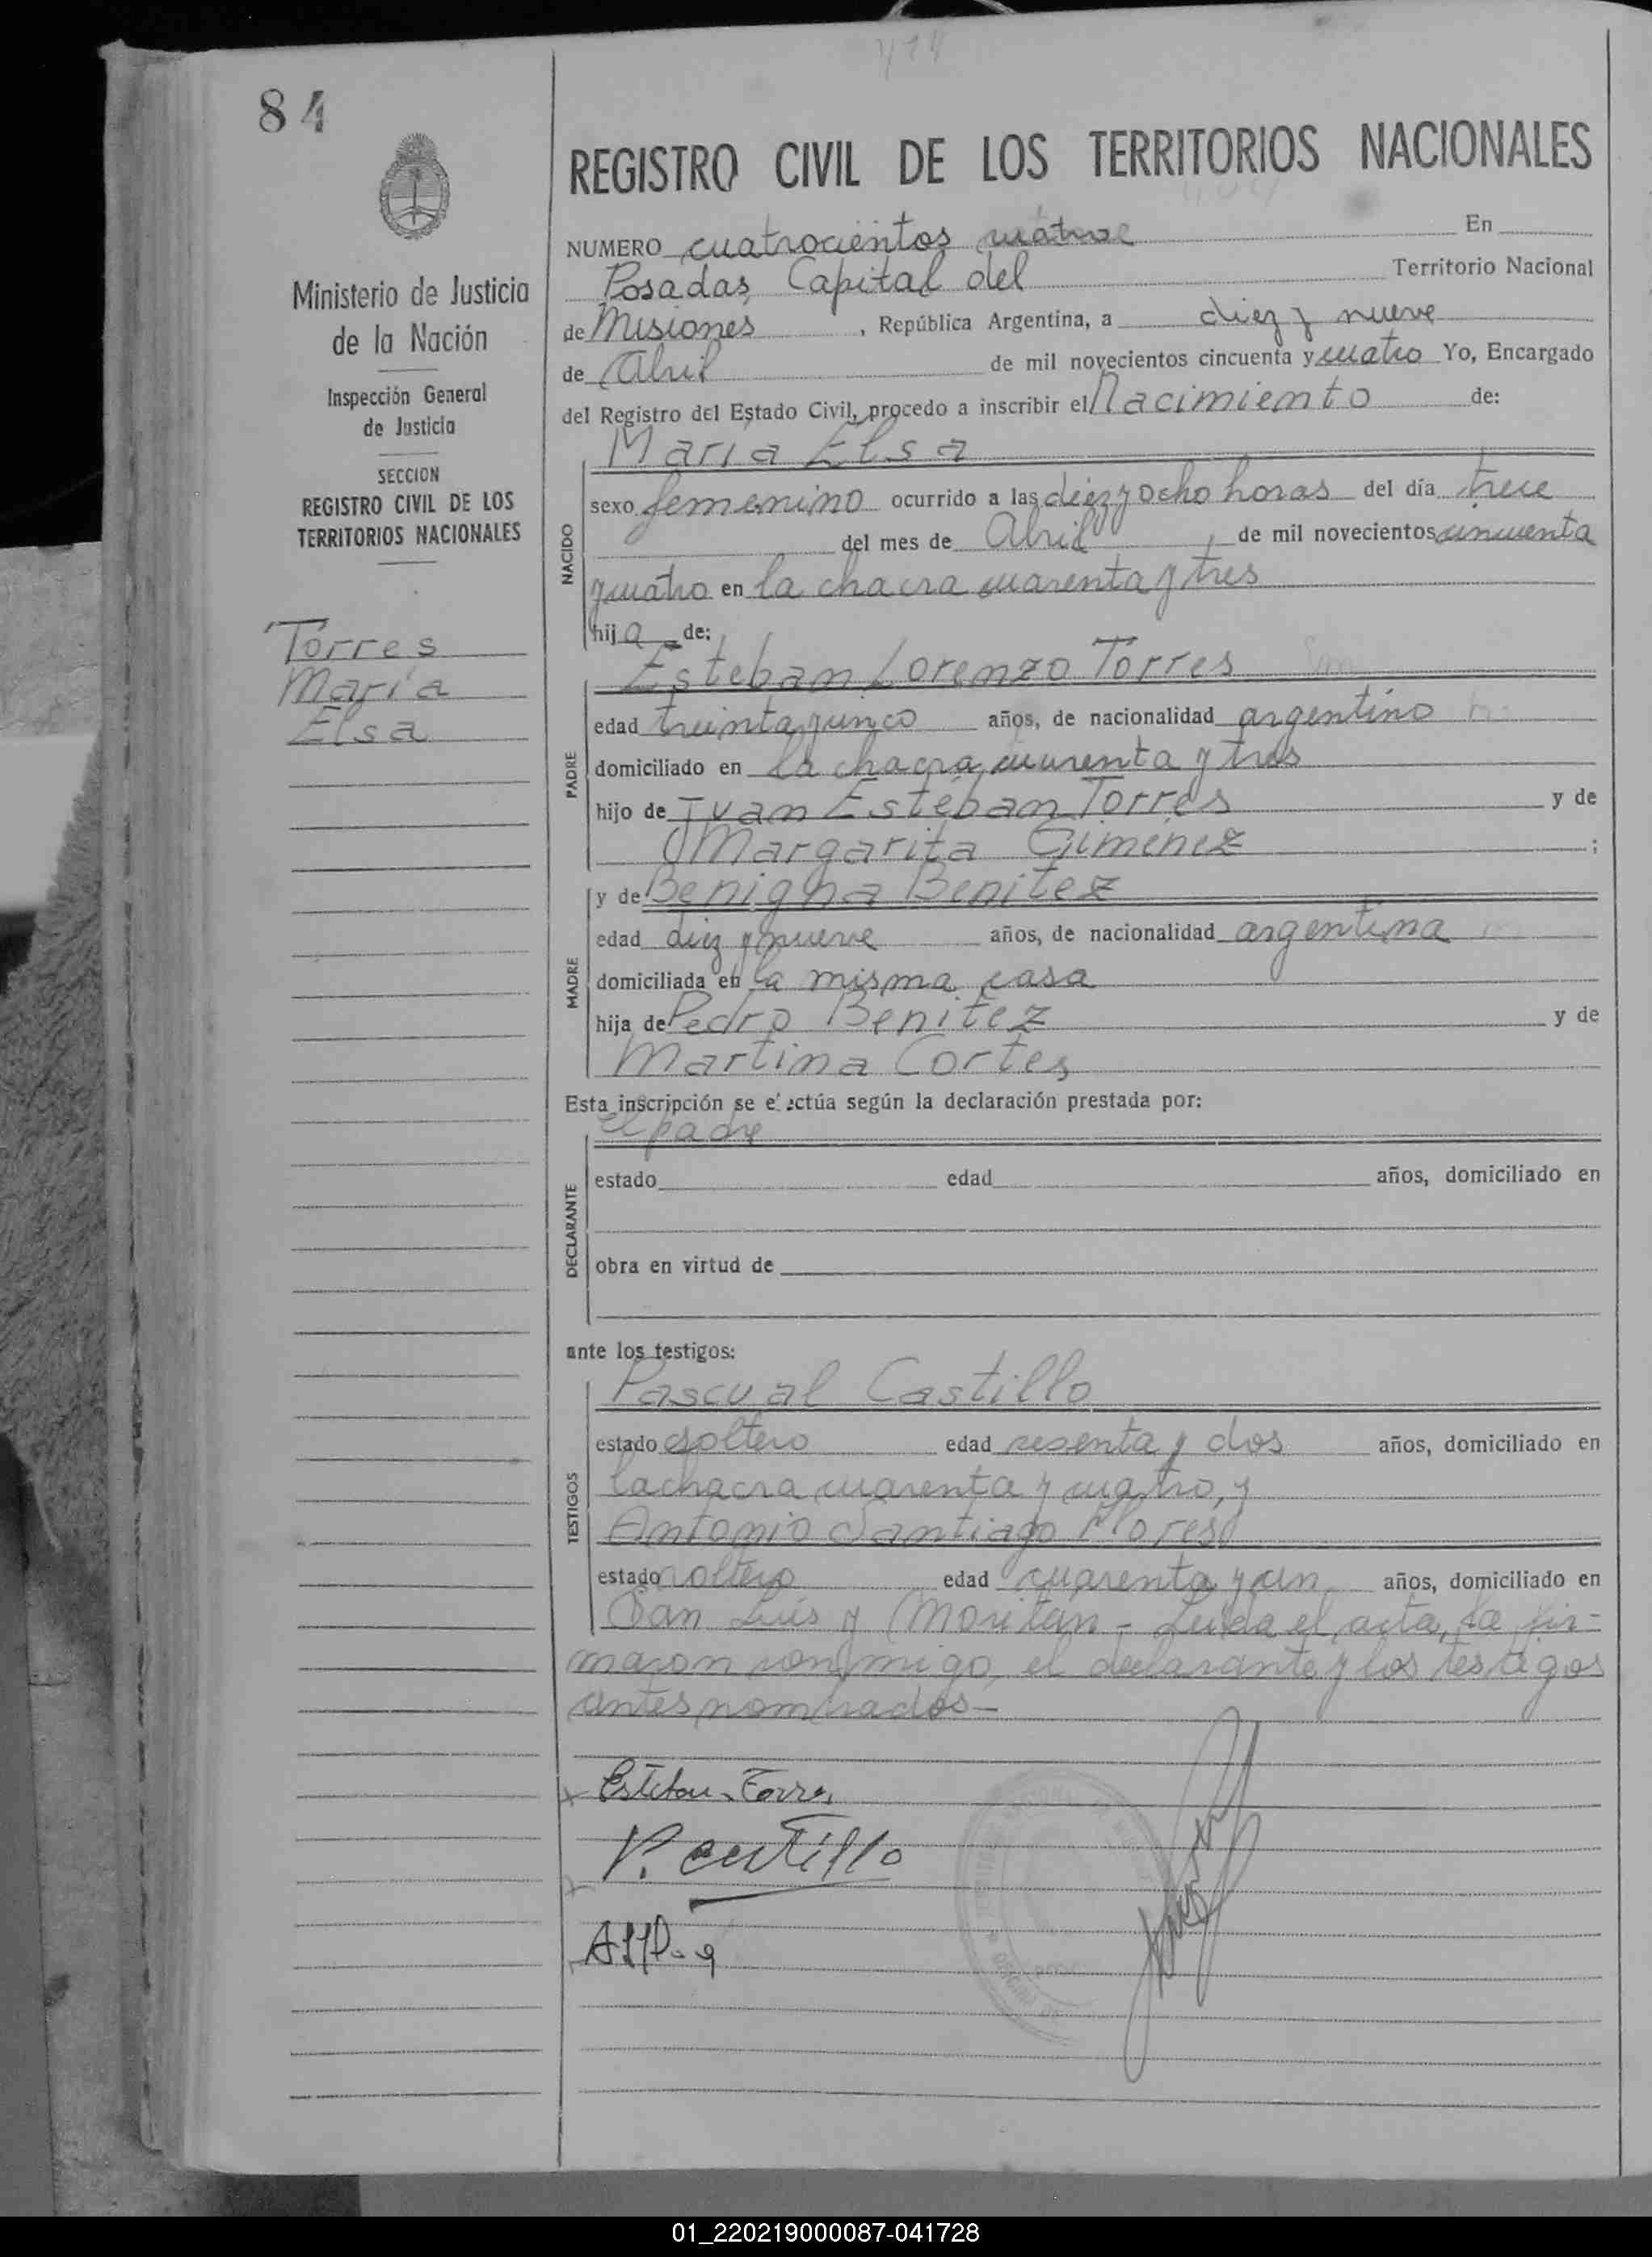 84
414
REGISTRO CIVIL DE LOS TERRITORIOS NACIONALES
Ministerio de Justicia
de la Nación
Inspección General
de Justicia
SECCION
REGISTRO CIVIL DE LOS
TERRITORIOS NACIONALES
Torres
María
Elsa
NUMERO cuatrocientos catorce En
Posadas, Capital del Territorio Nacional
de Misiones, República Argentina, a diez y nueve
de Abril de mil novecientos cincuenta y cuatro Yo, Encargado
del Registro del Estado Civil, procedo a inscribir el Nacimiento de:
NACIDO
María Elsa
sexo femenino ocurrido a las diez y ocho horas del día trece
del mes de Abril, de mil novecientos cincuenta
y cuatro en la chacra cuarenta y tres
hija de:
PADRE
Esteban Lorenzo Torres
edad treinta y cinco años, de nacionalidad argentino
domiciliado en la chacra cuarenta y tres
hijo de Juan Esteban Torres y de
Margarita Gimenez ;
MADRE
y de Benigna Benitez
edad diez y nueve años, de nacionalidad argentina
domiciliada en la misma casa
hija de Pedro Benitez y de
Martina Cortes
Esta inscripción se efectúa según la declaración prestada por:
DECLARANTE
el padre
estado edad años, domiciliado en
obra en virtud de
ante los testigos:
TESTIGOS
Pascual Castillo
estado soltero edad sesenta y dos años, domiciliado en
la chacra cuarenta y cuatro, y
Antonio Santiago Flores
estado soltero edad cuarenta y un años, domiciliado en
San Luis y Moritan - Leida el acta, la fir-
maron conmigo, el declarante y los testigos
antes nombrados -
Esteban Torres
P. Castillo
01_220219000087-041728